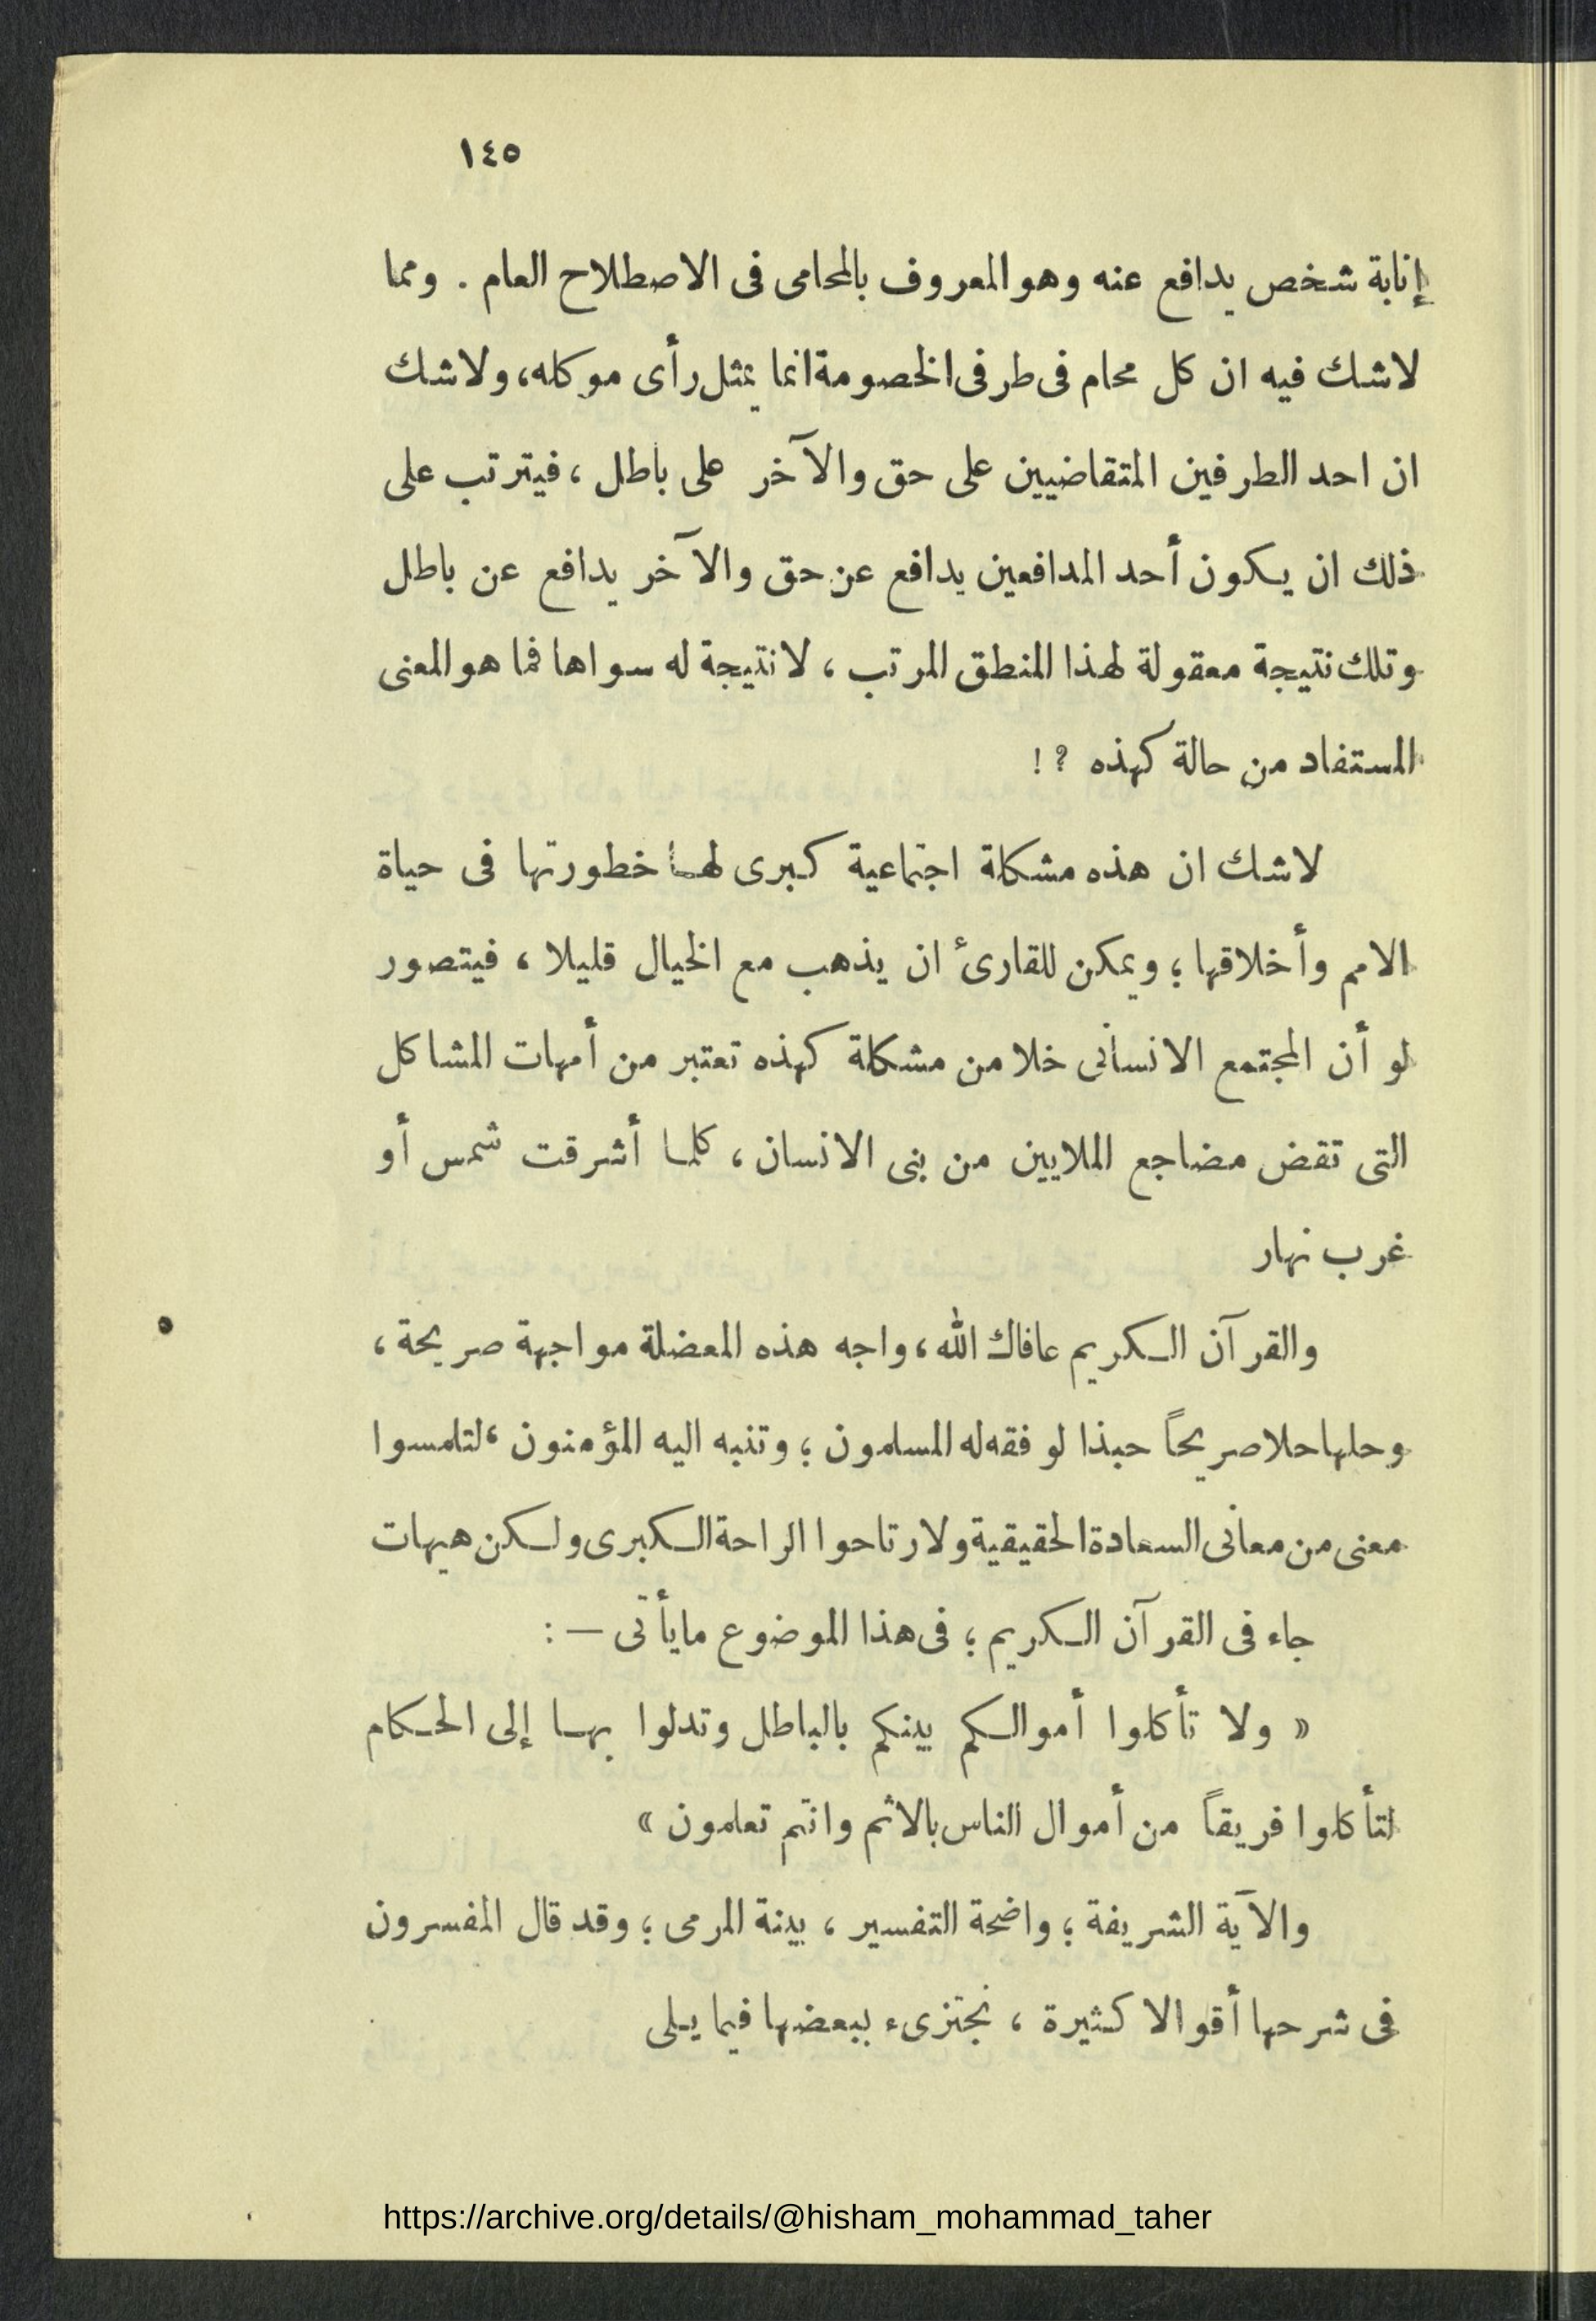 ١٤٥
إنابة شخص يدافع عنه وهو المعروف بالمحامى فى الاصطلاح العام . ومما
لاشك فيه ان كل محام فى طرفى الخصومة انما يمثل رأى موكله، ولاشك
ان احد الطرفين المتقاضيين على حق والآخر على باطل ، فيترتب على
ذلك ان يكون أحد المدافعين يدافع عن حق والآخر يدافع عن باطل
وتلك نتيجة معقولة لهذا المنطق المرتب ، لانتيجة له سواها فما هو المعنى
المستفاد من حالة كهذه ؟ !
لاشك ان هذه مشكلة اجتماعية كبرى لها خطورتها فى حياة
الامم وأخلاقها ؛ ويمكن للقارئ ان يذهب مع الخيال قليلا ، فيتصور
لو أن المجتمع الانسانى خلا من مشكلة كهذه تعتبر من أمهات المشاكل
التى تقض مضاجع الملايين من بنى الانسان ، كلما أشرقت شمس أو
غرب نهار
والقرآن الكريم عافاك الله ، واجه هذه المعضلة مواجهة صريحة ،
وحلها حلا صريحاً حبذا لو فقه له المسلمون ؛ وتنبه اليه المؤمنون ، لتلمسوا
معنى من معانى السعادة الحقيقية ولارتاحوا الراحة الكبرى ولكن هيهات
جاء فى القرآن الكريم ؛ فى هذا الموضوع مايأتى — :
« ولا تأكلوا أموالكم بينكم بالباطل وتدلوا بها إلى الحكام
لتأكلوا فريقاً من أموال الناس بالاثم وانتم تعلمون »
والآية الشريفة ؛ واضحة التفسير ، بينة المرمى ؛ وقد قال المفسرون
فى شرحها أقوالا كثيرة ، نجتزىء ببعضها فيما يلى
https://archive.org/details/@hisham_mohammad_taher